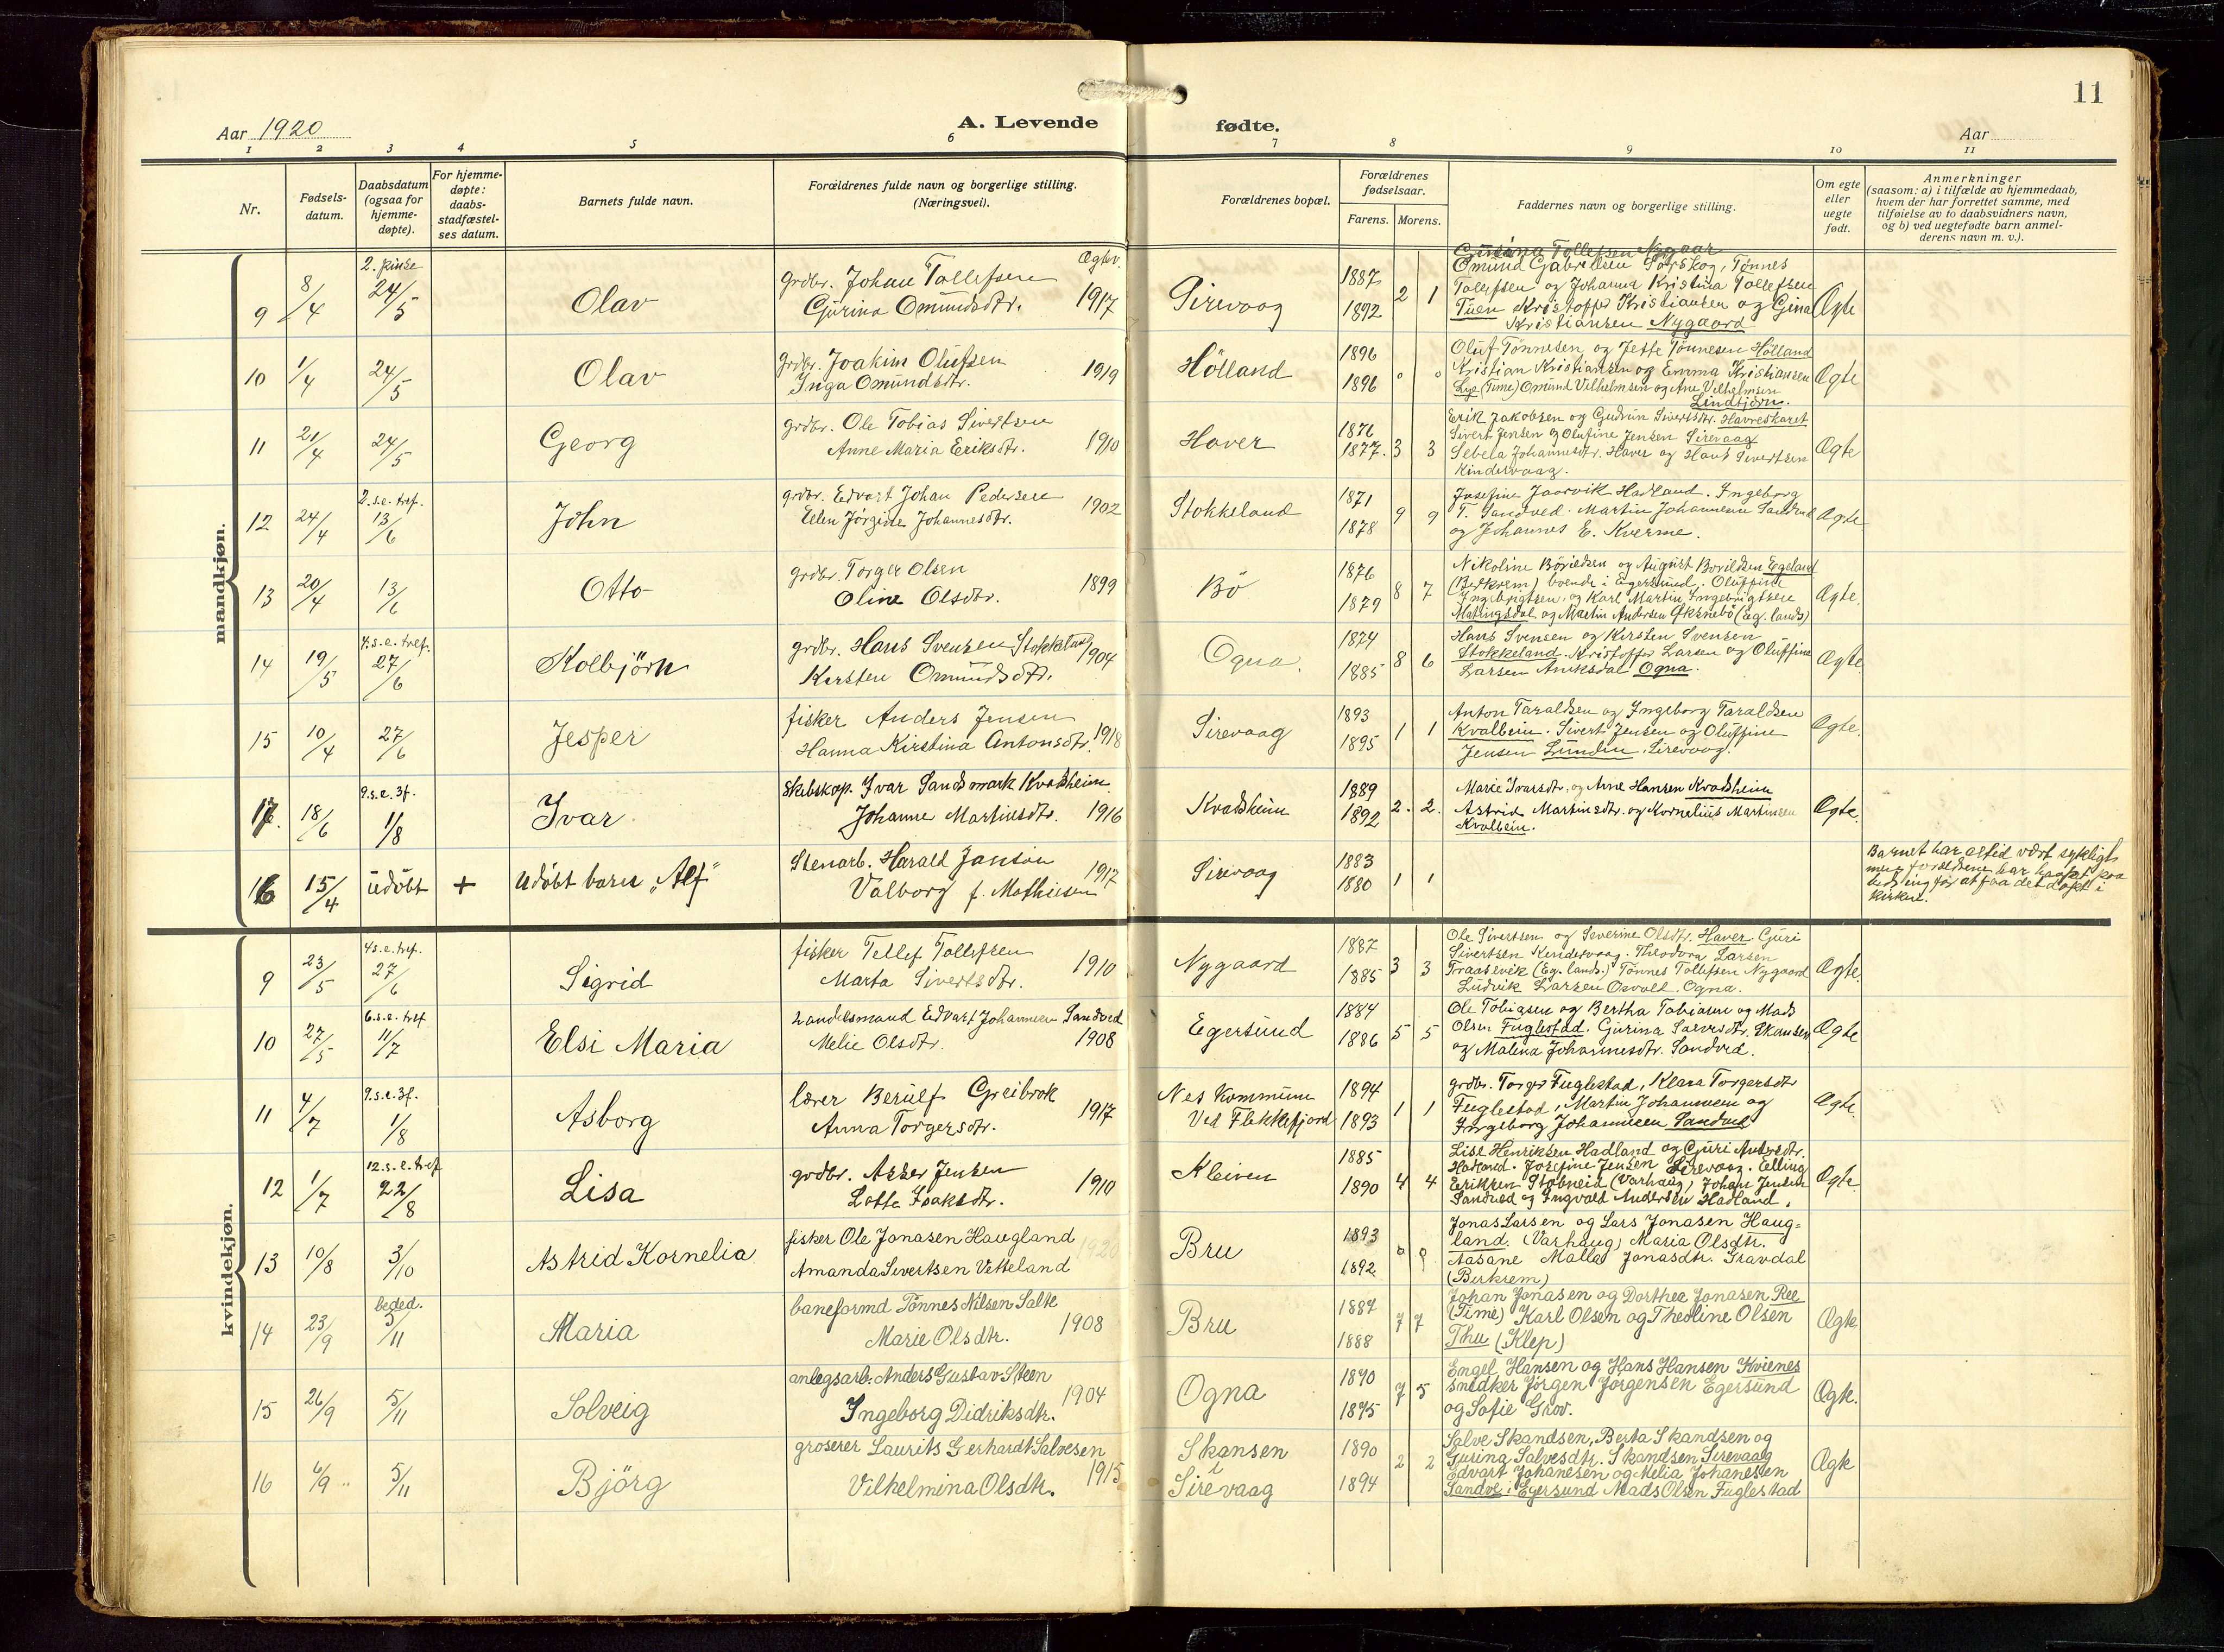 11
Aar 1920
A. Levende fødte.
Aar
1 2 3 4 5 6 7 8 9 10 11
Nr.
Fødsels-
datum.
Daabsdatum
(ogsaa for
hjemme-
døpte).
For hjemme-
døpte:
daabs-
stadfæstel-
ses datum.
Barnets fulde navn.
Forældrenes fulde navn og borgerlige stilling.
(Næringsvei).
Forældrenes bopæl.
Forældrenes
fødselsaar.
Farens. Morens.
Faddernes navn og borgerlige stilling.
Om egte
eller
uegte
født.
Anmerkninger
(saasom: a) i tilfælde av hjemmedaab,
hvem der har forrettet samme, med
tilføielse av to daabsvidners navn,
og b) ved uegtefødte barn anmel-
derens navn m. v.).
mandkjøn.
9 8/4 2. pinse 24/5 Olav
grdbr. Johan Tollefsen Ægtev.
Gurina Omundsdtr. 1917
Sirevaag 1887 1892 2 1
Gurina Tollefsen Nygaar
Omund Gabrielsen Torskog, Tønnes
Tollefsen og Johanna Kristina Tollefsen
Tuen Kristoffer Kristiansen og Gina
Kristiansen Nygaard
Ægte
10 1/4 24/5 Olav
grdbr. Joakim Olufsen
Inga Omundsdtr. 1919
Hölland 1896 1896 0 0
Oluf Tønnesen og Jette Tønnesen Hölland
Kristian Kristiansen og Emma Kristiansen
Lye (Time) Omund Vilhelmsen og Ane Vilhelmsen
Lindtjørn.
Ægte
11 21/4 24/5 Georg
grdbr. Ole Tobias Sivertsen
Anne Maria Eriksdtr. 1910
Haver 1876 1877. 3 3
Erik Jakobsen og Gudrun Sivertsdtr. Havreskaret
Sivert Jensen og Olufine Jensen Sirevaag
Sebela Johannesdtr. Haver og Hans Sivertsen
Kindervaag.
Ægte
12 24/4 2.s.e.tref. 13/6 John
grdbr. Edvart Johan Pedersen
Ellen Jörgine Johannesdtr. 1902
Stokkeland 1871 1878 9 9
Josefine Jaarvik Hadland. Ingeborg
T. Sandved. Martin Johannesen Sandved
og Johannes E. Kverme.
Ægte
13 20/4 13/6 Otto
grdbr. Torger Olsen
Oline Olsdtr. 1899
Bö 1876 1879 8 7
Nikoline Börildsen og August Börildsen Egeland
(Bjerkrem) boende i Egersund. Oluffine
Ingebrigtsen og Karl Martin Ingebrigtsen
Maringsdal og Martin Andersen Öksnebö (Eg. lands)
Ægte.
14 19/5 4.s.e.tref. 27/6 Kolbjörn
grdbr. Hans Svensen Stokkeland
Kersten Omundsdtr. 1904
Ogna. 1874 1885 8 6
Hans Svensen og Kersten Svensen
Stokkeland. Kristoffer Larsen og Oluffine
Larsen Aniksdal Ogna.
Ægte
15 10/4 27/6 Jesper
fisker Anders Jensen
Hanna Kirstina Antonsdtr. 1918
Sirevaag 1893 1895 1 1
Anton Taraldsen og Ingeborg Taraldsen
Kvalbein. Sivert Jensen og Oluffine
Jensen Lunden. Sirevaag.
Ægte.
17. 18/6 9.s.e.3f. 1/8 Ivar
skibskap. Ivar Sandsmark Kvadsheim.
Johanne Martinsdtr. 1916
Kvadsheim 1889 1892 2. 2.
Marie Ivarsdtr. og Arne Hansen Kvadsheim
Astrid Martinsdtr. og Kornelius Martinsen
Kvalbein.
Ægte.
16 15/4 udöbt + Udöbt barn „Alf"
Stenarb. Harald Janson
Valborg f. Mathiesen 1917
Sirevaag 1883 1880 1 1
Barnet har altid vært sykligt
men forældrene har haabet paa
bedring for at faa det döbt i
kirken.
kvindekjøn.
9 23/5 4s.e.tref. 27/6 Sigrid
fisker Tollef Tollefsen
Marta Sivertsdtr. 1910
Nygaard 1887 1885 3 3
Ole Sivertsen og Severine Olsdtr. Haver. Guri
Sivertsen Kindervaag. Theodora Larsen
Traasevik (Eg. lands.) Tönnes Tollefsen Nygaard
Ludvik Larsen Osvoll. Ogna.
Ægte.
10 27/5 6.s.e.tref 11/7 Elsi Maria
handelsmand Edvart Johannesen Sandved
Melie Olsdtr. 1908
Egersund 1884 1886 5 5
Ole Tobiasen og Bertha Tobiasen og Mads
Olsen Fuglestad. Gurina Salvesdtr. Skansen
og Malena Johannesdtr. Sandved.
Ægte
11 4/7 9.s.e.3f. 1/8 Asborg
lærer Berulf Greibrok
Anna Torgersdtr. 1917
Nes Kommune
Ved Flekkefjord
1894 1893 1 1
grdbr. Torger Fuglestad, Klara Torgersdtr
Fuglestad, Martin Johannesen og
Ingeborg Johannesen Sandved
Ægte.
12 1/7 12.s.e.tref 22/8 Lisa
grdbr. Asser Jensen
Lotte Isaksdtr. 1910
Kleiven 1885 1890 4 4
Lise Henriksen Hadland og Guri Andersdtr.
Hadland. Josefine Jensen Sirevaag. Elling
Eriksen Stabneia (Varhaug) Johan Jensen
Sandved og Ingvald Andersen Hadland.
Ægte.
13 10/8 3/10 Astrid Kornelia
fisker Ole Jonasen Haugland
Amanda Sivertsen Vetteland 1920
Bru 1893 1892 0 0
Jonas Larsen og Lars Jonasen Haug=
land. (Varhaug) Maria Olsdtr.
Aasane Malla Jonasdtr. Gravdal
(Birkrem)
14 23/9 beded. 5/11 Maria
baneformd Tönnes Nilsen Salte
Marie Olsdtr. 1908
Bru 1884 1888 7 7
Johan Jonasen og Dorthea Jonasen Ree
(Time) Karl Olsen og Theoline Olsen
Thu (Klep)
Ægte.
15 26/9 5/11 Solveig
anlegsarb. Anders Gustav Steen
Ingeborg Didriksdtr. 1904
Ogna 1870 1875 7 5
Engel Hansen og Hans Hansen Kvienes
snedker Jörgen Jörgensen Egersund
og Sofie Grov.
Ægte.
16 6/9 5/11 Björg
groserer Laurits Gerhardt Salvesen
Vilhelmina Olsdtr. 1915
Skansen
i
Sirevaag
1890 1894 2 2
Salve Skandsen, Berta Skandsen og
Gurina Salvesdtr. Skandsen Sirevaag
Edvart Johanesen og Melia Johanesen
Sandve i Egersund Mads Olsen Fuglestad
Ægte